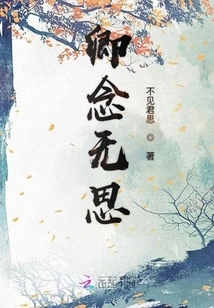 卿念无思
不见君思 ◎ 著